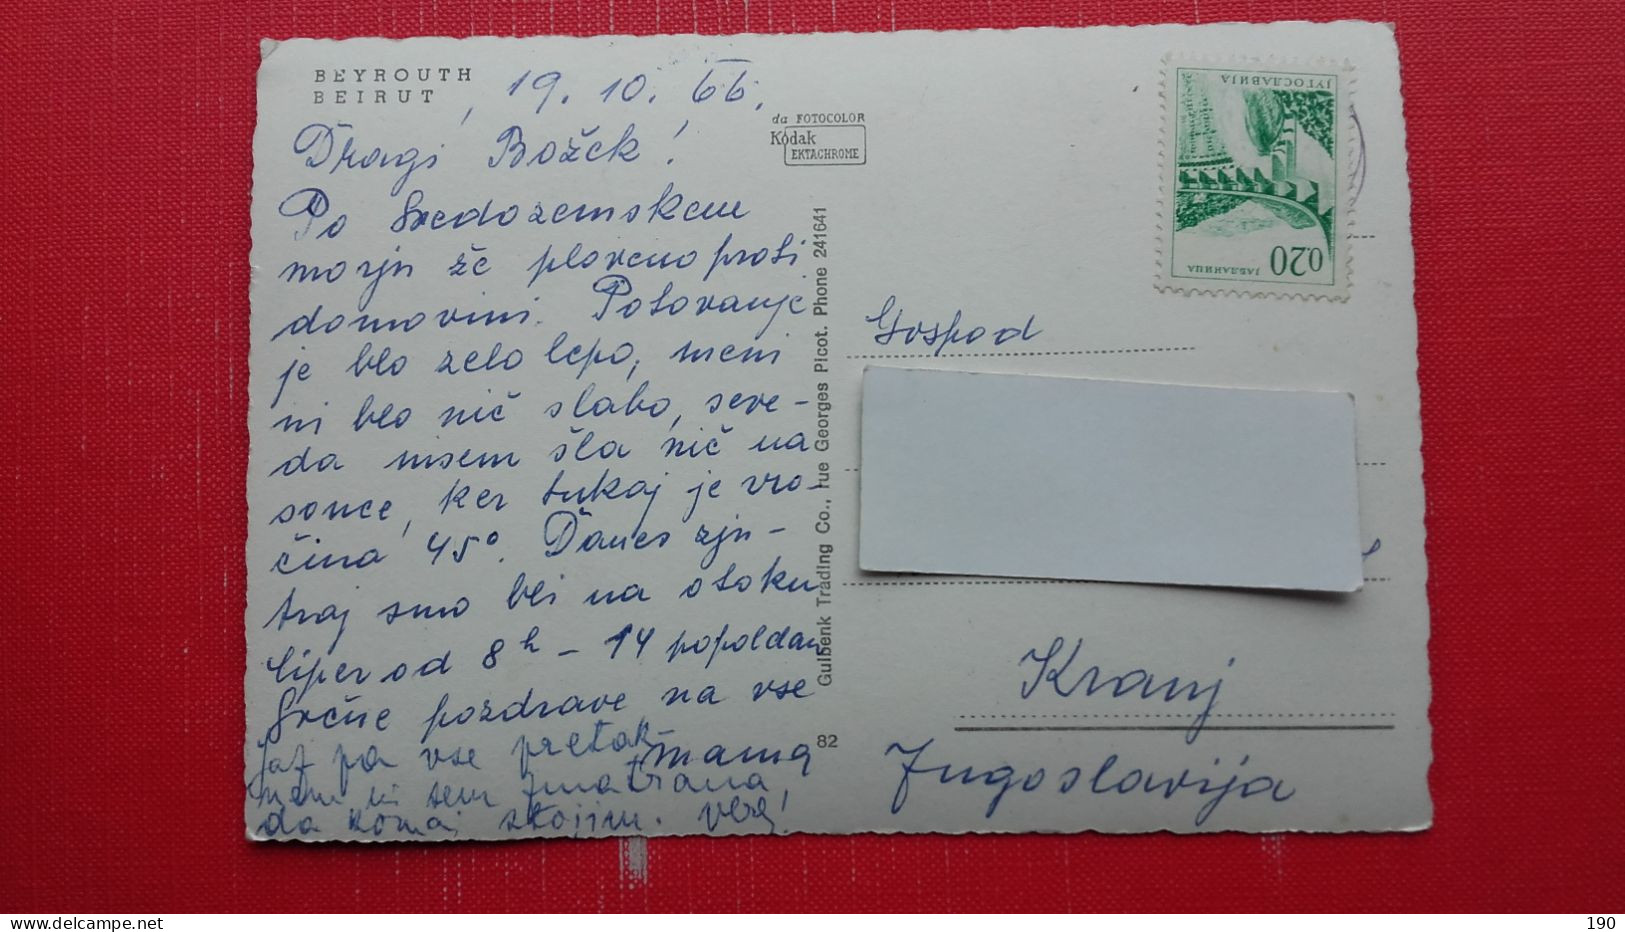 BEYROUTH
BEIRUT
, 19. 10. 66.
Dragi Božek!
Po Sredozemskem
morju že plovemo proti
domovini. Potovanje
je blo zelo lepo, meni
ni blo nič slabo, seve-
da nisem šla nič na
sonce, ker tukaj je vro-
čina 45°. Danes zju-
traj smo bli na otoku
Ciper od 8h - 14 popoldan
Srčne pozdrave na vse
mama
jaz pa vse pretak-
nem, ni sem
da komaj stojim.
da FOTOCOLOR
Kodak
EKTACHROME
Gulbenk Trading Co., rue Georges Picot. Phone 241641
82
ЈУГОСЛАВИЈА
ЈАБЛАНИЦА
0.20
Gospod
Kranj
Jugoslavija
190